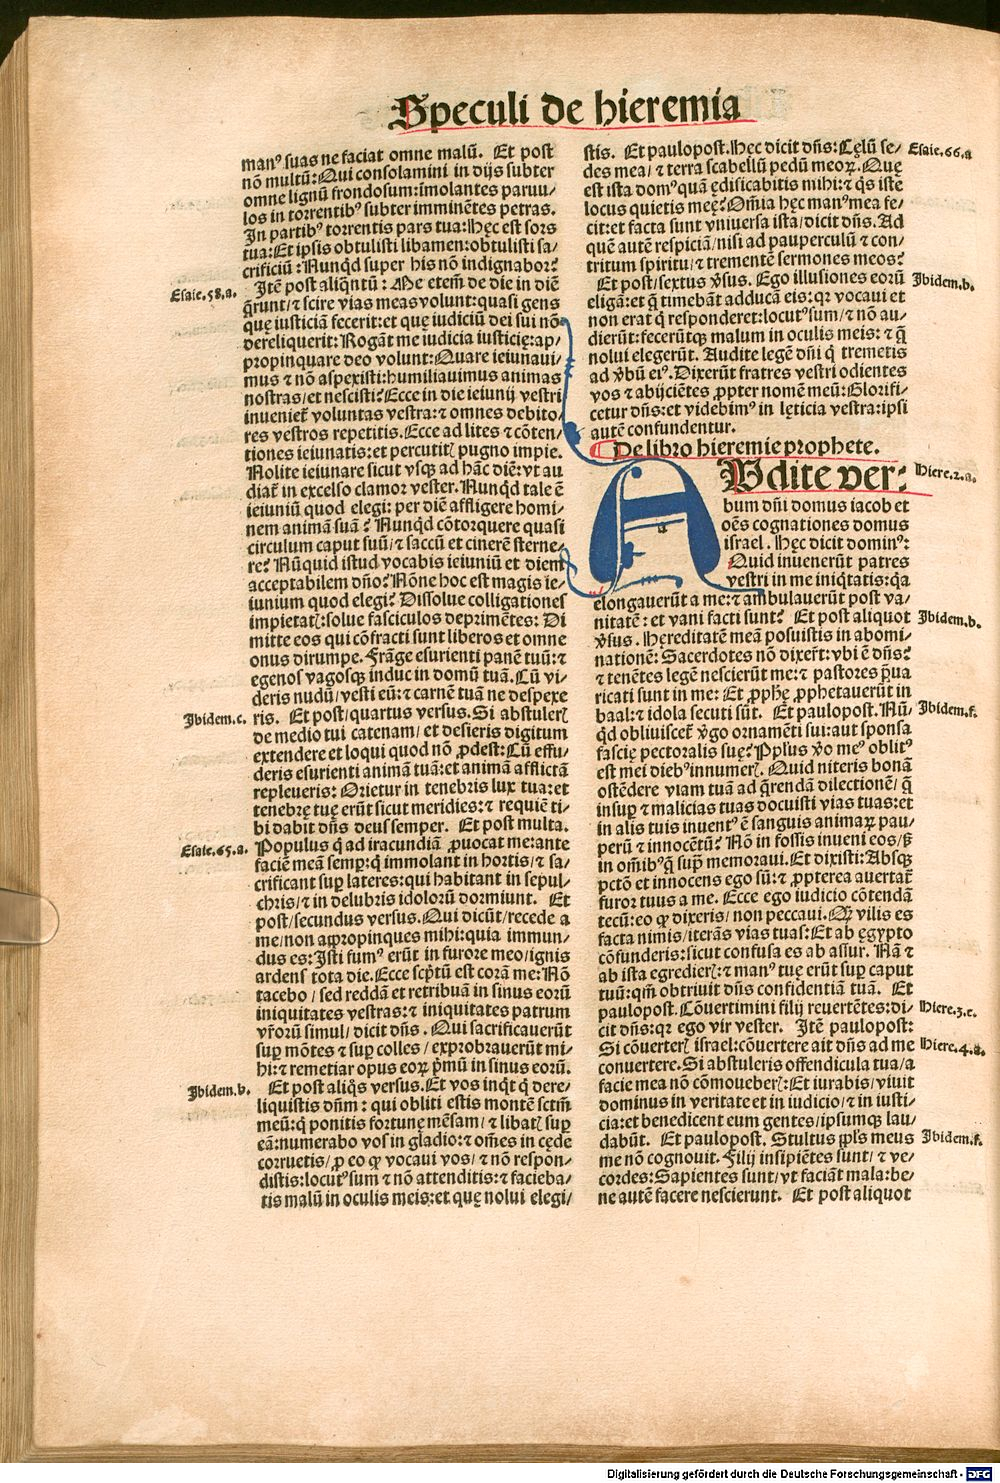 Speculi de hieremia
manꝰ suas ne faciat omne malū. Et post
nō multū: Qui consolamini in dijs subter
omne lignū frondosum: īmolantes paruu/
los in torrentibꝰ subter imminētes petras.
In partibꝰ torrentis pars tua: Hęc est sors
tua: Et ipsis obtulisti libamen: obtulisti sa/
crificiū: Nunqd super his nō indignabor?
Esaie.58.a.
Itē post aliqntū: Me etem̄ de die in diē
q̄runt/ ⁊ scire vias meas volunt: quasi gens
quę iusticiā fecerit: et quę iudiciū dei sui nō
dereliquerit: Rogāt me iudicia iusticię: ap/
propinquare deo volunt: Quare ieiunaui/
mus ⁊ nō aspexisti: humiliauimus animas
nostras/ et nescisti? Ecce in die ieiunij vestri
inuenieť voluntas vestra: ⁊ omnes debito/
res vestros repetitis. Ecce ad lites ⁊ cōten/
tiones ieiunatis: et percutitꝭ pugno impie.
Nolite ieiunare sicut vsqꝫ ad hāc diē: vt au
diať in excelso clamor vester. Nunqd tale ē
ieiuniū quod elegi: per diē affligere homi/
nem animā suā? Nunqd cōtorquere quasi
circulum caput suū/ ⁊ saccū et cinerē sterne/
re? Nūquid istud vocabis ieiuniū et diem
acceptabilem dño? Nōne hoc est magis ie/
iunium quod elegi? Dissolue colligationes
impietatꝭ: solue fasciculos deprimētes: Di
mitte eos qui cōfracti sunt liberos et omne
onus dirumpe. Frāge esurienti panē tuū: ⁊
egenos vagosqꝫ induc in domū tuā. Cū vi/
deris nudū/ vesti eū: ⁊ carnē tuā ne despexe
Ibidem.c.
ris. Et post/ quartus versus. Si abstulerꝭ
de medio tui catenam/ et desieris digitum
extendere et loqui quod nō ꝓdest: Cū effu/
deris esurienti animā tuā: et animā afflictā
repleueris: Orietur in tenebris lux tua: et
tenebrę tuę erūt sicut meridies: ⁊ requiē ti/
bi dabit dñs deus semper. Et post multa.
Esaie.65.a.
Populus q̇ ad iracundiā ꝓuocat me: ante
faciē meā semꝑ: q̇ immolant in hortis/ ⁊ sa/
crificant suꝑ lateres: qui habitant in sepul/
chris/ ⁊ in delubris idolorū dormiunt. Et
post/ secundus versus. Qui dicūt/ recede a
me/ non appropinques mihi: quia immun/
dus es: Isti fumꝰ erūt in furore meo/ ignis
ardens tota die. Ecce scptū est corā me: Nō
tacebo/ sed reddā et retribuā in sinus eorū
iniquitates vestras: ⁊ iniquitates patrum
vr̄orū simul/ dicit dñs. Qui sacrificauerūt
suꝑ mōtes ⁊ suꝑ colles/ exprobrauerūt mi/
hi: ⁊ remetiar opus eoꝝ pꝛmū in sinus eorū.
Ibidem.b.
Et post aliqs versus. Et vos inqt q̇ dere/
liquistis dñm: qui obliti estis montē sctm̄
meū: q̇ ponitis fortunę mēsam/ ⁊ libatꝭ suꝑ
eā: numerabo vos in gladio: ⁊ om̄es in cęde
corruetis/ ꝓ eo ꝙ vocaui vos/ ⁊ nō respon/
distis: locutꝰsum ⁊ nō attenditis: ⁊ facieba/
tis malū in oculis meis: et quę nolui elegi/
stis. Et paulopost. Hęc dicit dñs: Cęlū se/
Esaie.66.a
des mea/ ⁊ terra scabellū pedū meoꝝ. Quę
est ista domꝰ quā ędificabitis mihi: ⁊ qs iste
locus quietis meę? Om̄ia hęc manꝰ mea fe/
cit: et facta sunt vniuersa ista/ dicit dñs. Ad
quē autē respiciā/ nisi ad pauperculū ⁊ con/
tritum spiritu/ ⁊ trementē sermones meos?
Ibidem.b.
Et post/ sextus v̓sus. Ego illusiones eorū
eligā: et q̄ timebāt adducā eis: qꝛ vocaui et
non erat q̇ responderet: locutꝰsum/ ⁊ nō au/
dierūt: fecerūtqꝫ malum in oculis meis: ⁊ q̄
nolui elegerūt. Audite legē dñi q̇ tremetis
ad v̓bū eiꝰ. Dixerūt fratres vestri odientes
vos ⁊ abijciētes ꝓpter nomē meū: Glorifi/
cetur dñs: et videbimꝰ in lęticia vestra: ipsi
autē confundentur.
De libro hieremie prophete.
AUdite ver:
Hiere.2.a.
bum dñi domus iacob et
oēs cognationes domus
israel. Hęc dicit dominꝰ:
Quid inuenerūt patres
vestri in me iniqtatis: qa
elongauerūt a me: ⁊ ambulauerūt post va/
nitatē: et vani facti sunt? Et post aliquot
Ibidem.b.
v̓sus. Hęreditatē meā posuistis in abomi/
nationē: Sacerdotes nō dixerūt: vbi ē dñs?
⁊ tenētes legē nescierūt me: ⁊ pastores pꝛua
ricati sunt in me: Et ꝓphę ꝓphetauerūt in
baal: ⁊ idola secuti sūt. Et paulopost. Nū/
Ibidem.f.
qd obliuisceť v̓go ornamēti sui: aut sponsa
fascię pectoralis suę? Ppl̓us v̓o meꝰ oblitꝰ
est mei diebꝰ innumerꝭ. Quid niteris bonā
ostēdere viam tuā ad q̄rendā dilectionē/ q̄
insuꝑ ⁊ malicias tuas docuisti vias tuas: et
in alis tuis inuentꝰ ē sanguis animaꝝ pau/
perū ⁊ innocētū? Nō in fossis inueni eos/ ß
in om̄ibꝰ q̄ supꝛ memoraui. Et dixisti: Absqꝫ
pctō et innocens ego sū: ⁊ ꝓpterea auertať
furor tuus a me. Ecce ego iudicio cōtendā
tecū: eo ꝙ dixeris/ non peccaui. Qꝫ vilis es
facta nimis/ iterās vias tuas: Et ab ęgypto
cōfunderis: sicut confusa es ab assur. Nā ⁊
ab ista egredierꝭ: ⁊ manꝰ tuę erūt suꝑ caput
tuū: qm̄ obtriuit dñs confidentiā tuā. Et
paulopost. Cōuertimini filij reuertētes: di/
Hiere.3.c.
cit dñs: qꝛ ego vir vester. Itē paulopost:
Si cōuerterꝭ israel: cōuertere ait dñs ad me
Hiere.4.a.
conuertere. Si abstuleris offendicula tua/ a
facie mea nō cōmoueberꝭ: Et iurabis/ viuit
dominus in veritate et in iudicio/ ⁊ in iusti/
cia: et benedicent eum gentes/ ipsumqꝫ lau/
dabūt. Et paulopost. Stultus ppl̓s meus
Ibidem.f.
me nō cognouit. Filij insipiētes sunt/ ⁊ ve/
cordes: Sapientes sunt/ vt faciāt mala: be/
ne autē facere nescierunt. Et post aliquot
Digitalisierung gefördert durch die Deutsche Forschungsgemeinschaft - DFG